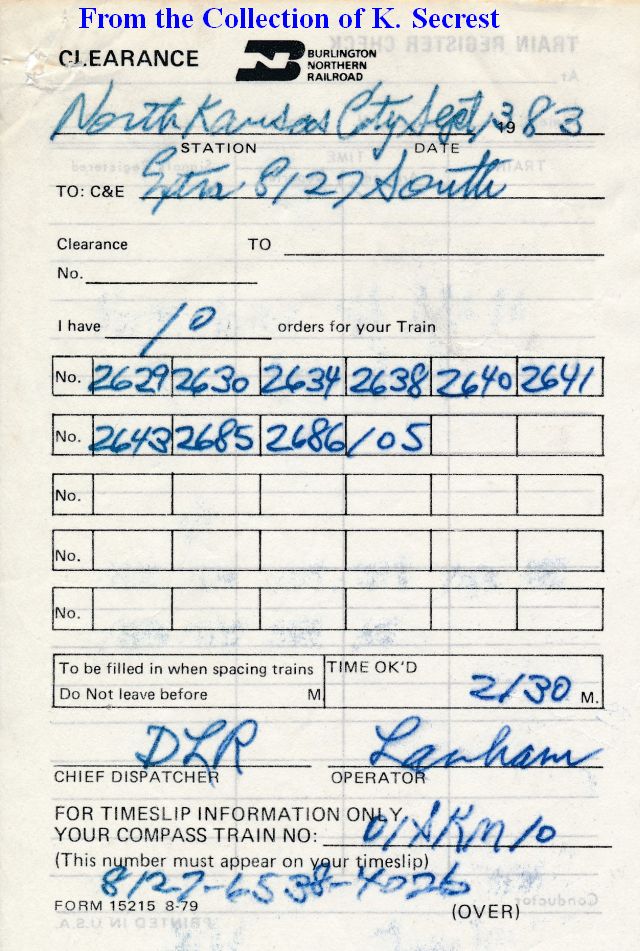 From the Collection of K. Secrest
CLEARANCE BN BURLINGTON
NORTHERN
RAILROAD
North Kansas City Sept 3 1983
STATION DATE
TO: C&E Extra 8127 South
Clearance TO
No.
I have 10 orders for your Train
No. 2629 2630 2634 2638 2640 2641
No. 2643 2685 2686 105
No.
No.
No.
To be filled in when spacing trains TIME OK'D
Do Not leave before M. 2130 M.
DLR Lanham
CHIEF DISPATCHER OPERATOR
FOR TIMESLIP INFORMATION ONLY,
YOUR COMPASS TRAIN NO:
(This number must appear on your timeslip)
8127-6538-4026
FORM 15215 8-79 (OVER)